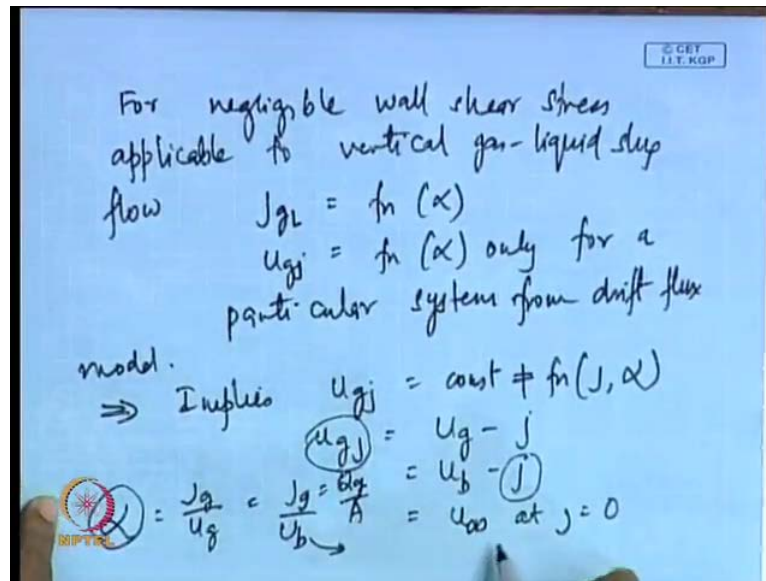 © CET
I.I.T. KGP
For negligible wall shear stress
applicable to vertical gas-liquid slug
flow J_gL = fn (α)
u_gj = fn (α) only for a
particular system from drift flux
model.
⇒ Implies u_gj = const ≠ fn(J, α)
u_gj = u_g - j
= u_b - j
α = J_g/u_g = J_g/u_b = Q_g/A = u_∞ at j = 0
NPTEL